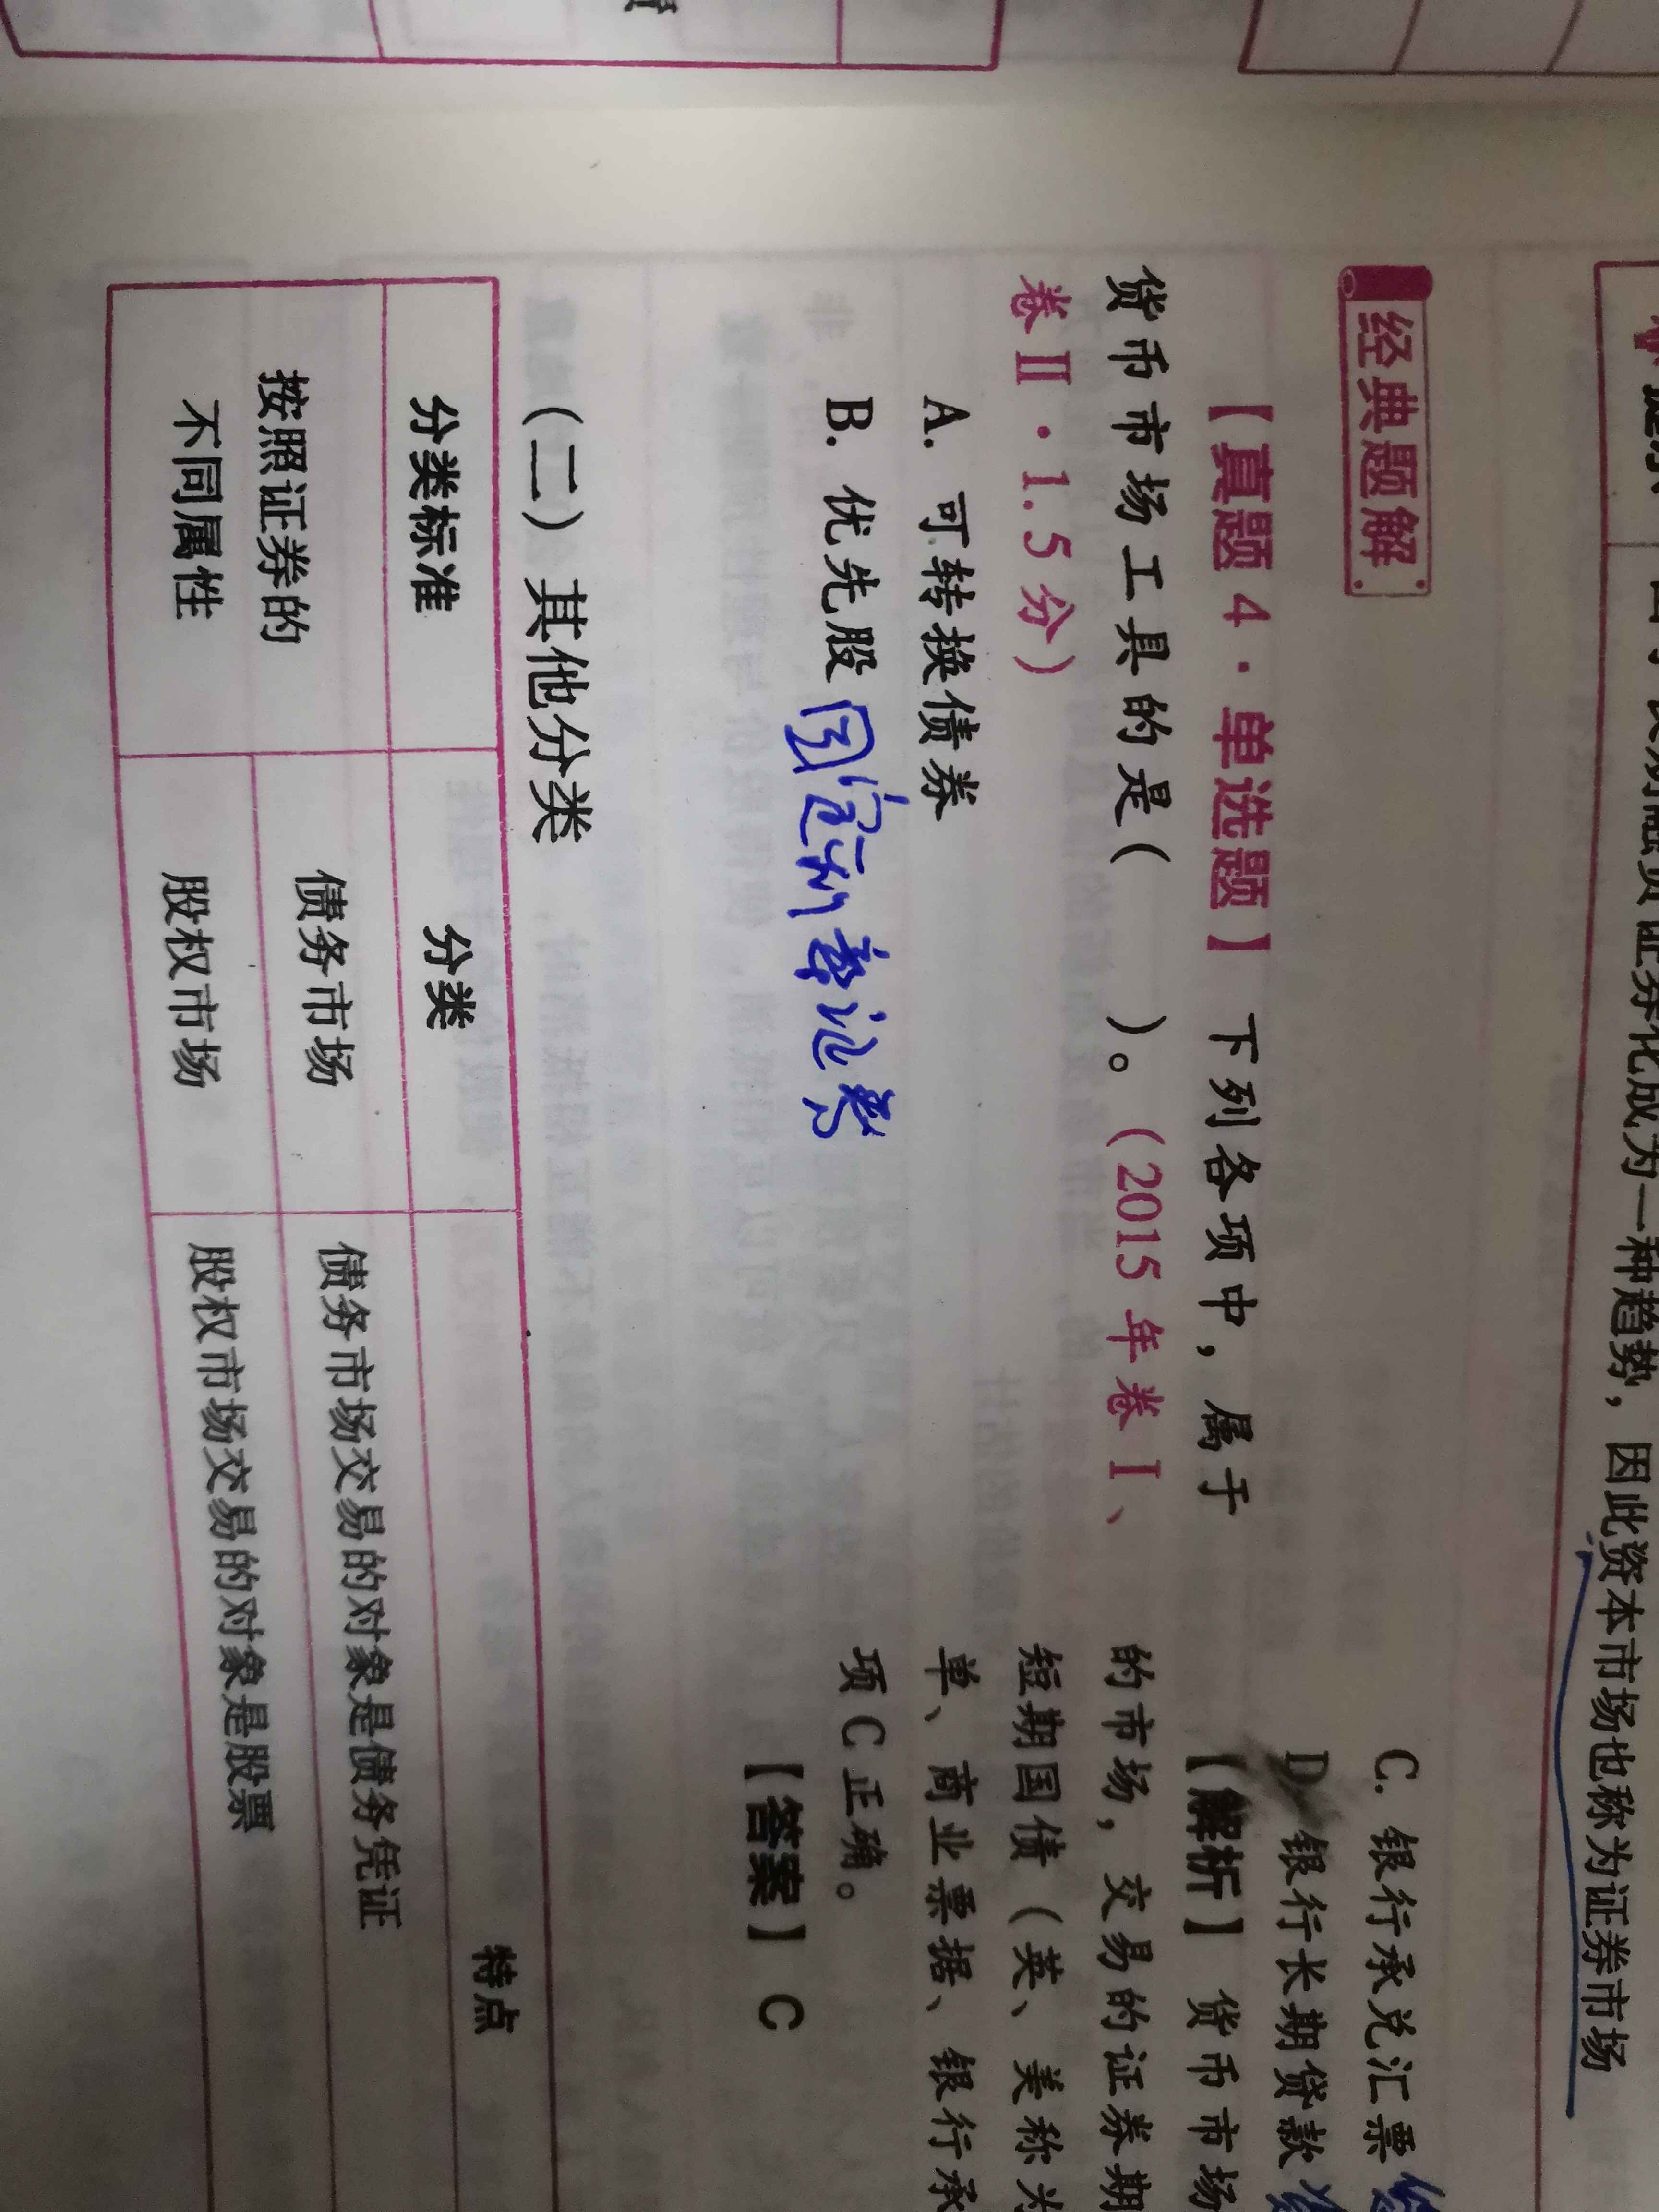 因此资本市场也称为证券市场
经典题解
【真题 4·单选题】下列各项中，属于
货币市场工具的是（ ）。（2015 年卷Ⅰ、
卷Ⅱ·1.5 分）
A. 可转换债券
B. 优先股 固定收益证券
C. 银行承兑汇票
D. 银行长期贷款
【解析】 货币市场
的市场，交易的证券期
短期国债（英、美称为
单、商业票据、银行承
项 C 正确。
【答案】 C
（二）其他分类
分类标准 分类 特点
按照证券的
不同属性
债务市场 债务市场交易的对象是债务凭证
股权市场 股权市场交易的对象是股票